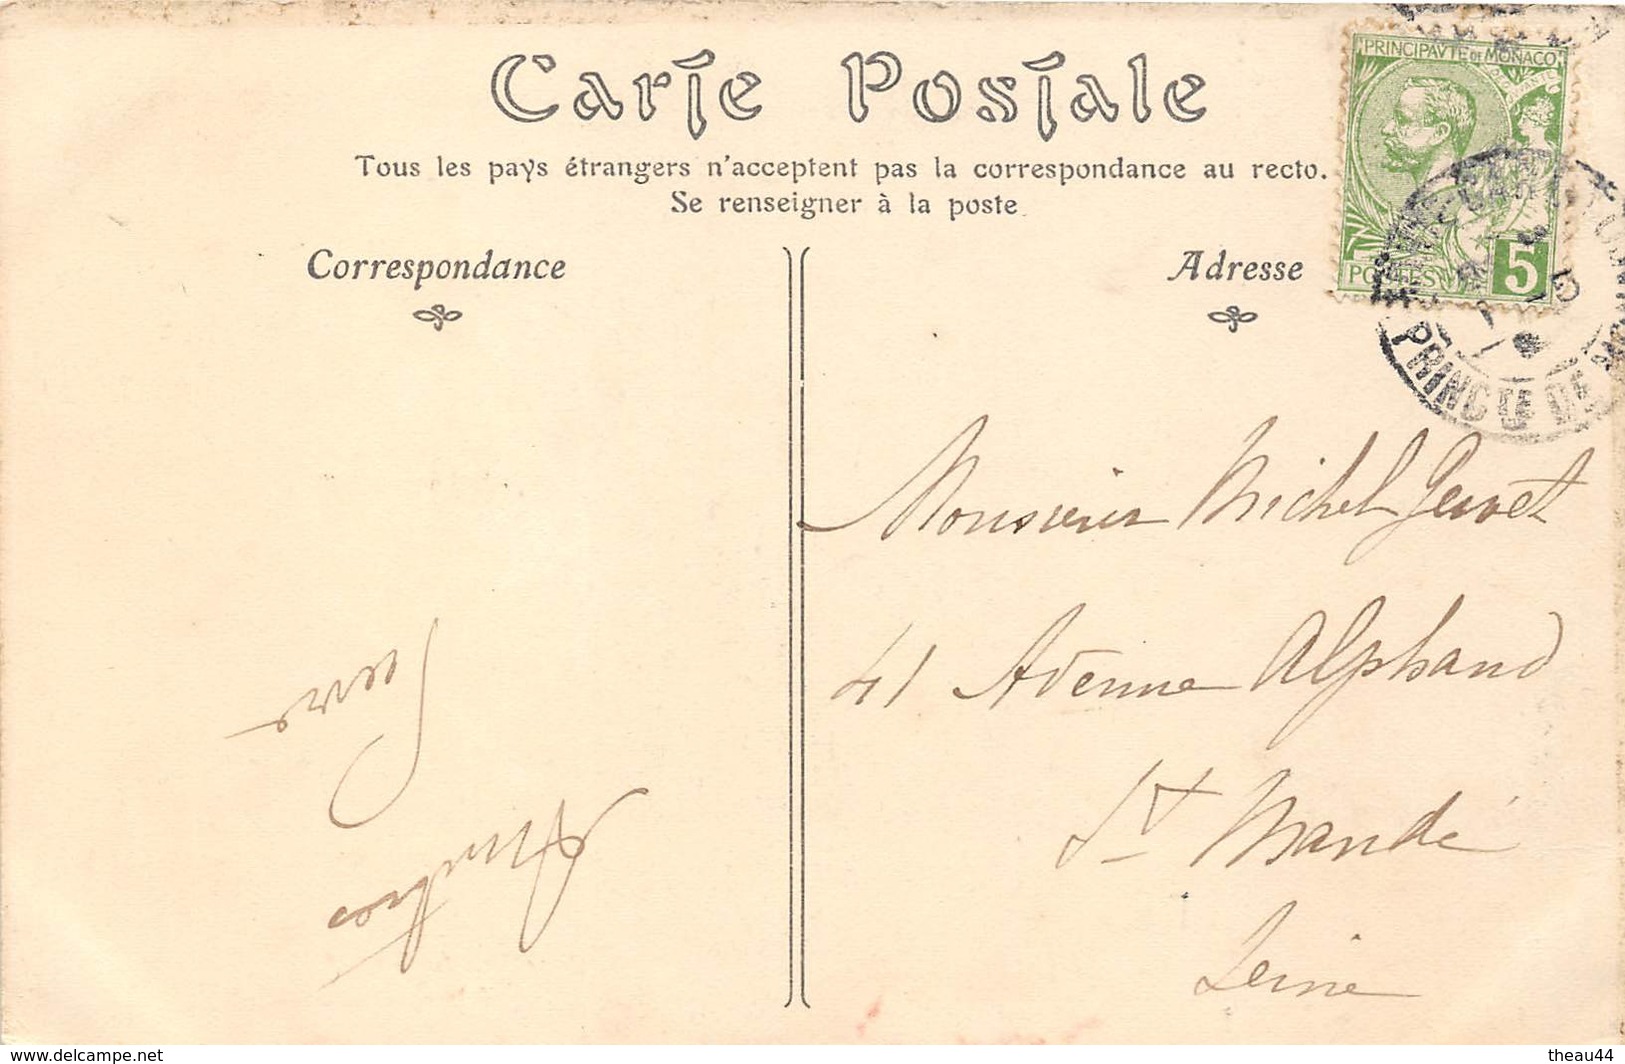 Carte Postale
Tous les pays étrangers n'acceptent pas la correspondance au recto.
Se renseigner à la poste
Correspondance
Adresse
PRINCIPAVTÉ DE MONACO
POSTES
5
PRINC DE
Monsieur Michel
41 Avenue Alphand
St Mandé
Seine
www.delcampe.net
theau44